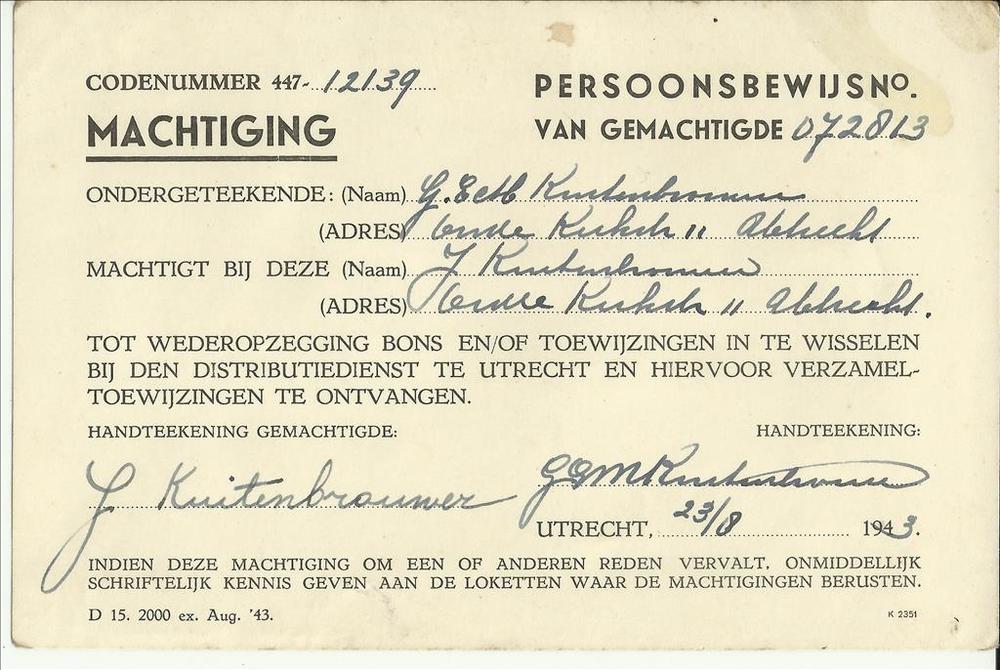 CODENUMMER 447-12139
PERSOONSBEWIJSNO.
MACHTIGING
VAN GEMACHTIGDE 072813
ONDERGETEEKENDE: (Naam) G. Kuitenbrouwer
(ADRES) 11 Utrecht
MACHTIGT BIJ DEZE (Naam) J Kuitenbrouwer
(ADRES) 11 Utrecht.
TOT WEDEROPZEGGING BONS EN/OF TOEWIJZINGEN IN TE WISSELEN
BIJ DEN DISTRIBUTIEDIENST TE UTRECHT EN HIERVOOR VERZAMEL-
TOEWIJZINGEN TE ONTVANGEN.
HANDTEEKENING GEMACHTIGDE:
HANDTEEKENING:
J Kuitenbrouwer
GGMKuitenbrouwer
UTRECHT, 23/8 1943.
INDIEN DEZE MACHTIGING OM EEN OF ANDEREN REDEN VERVALT, ONMIDDELLIJK
SCHRIFTELIJK KENNIS GEVEN AAN DE LOKETTEN WAAR DE MACHTIGINGEN BERUSTEN.
D 15. 2000 ex. Aug. '43.
K 2351